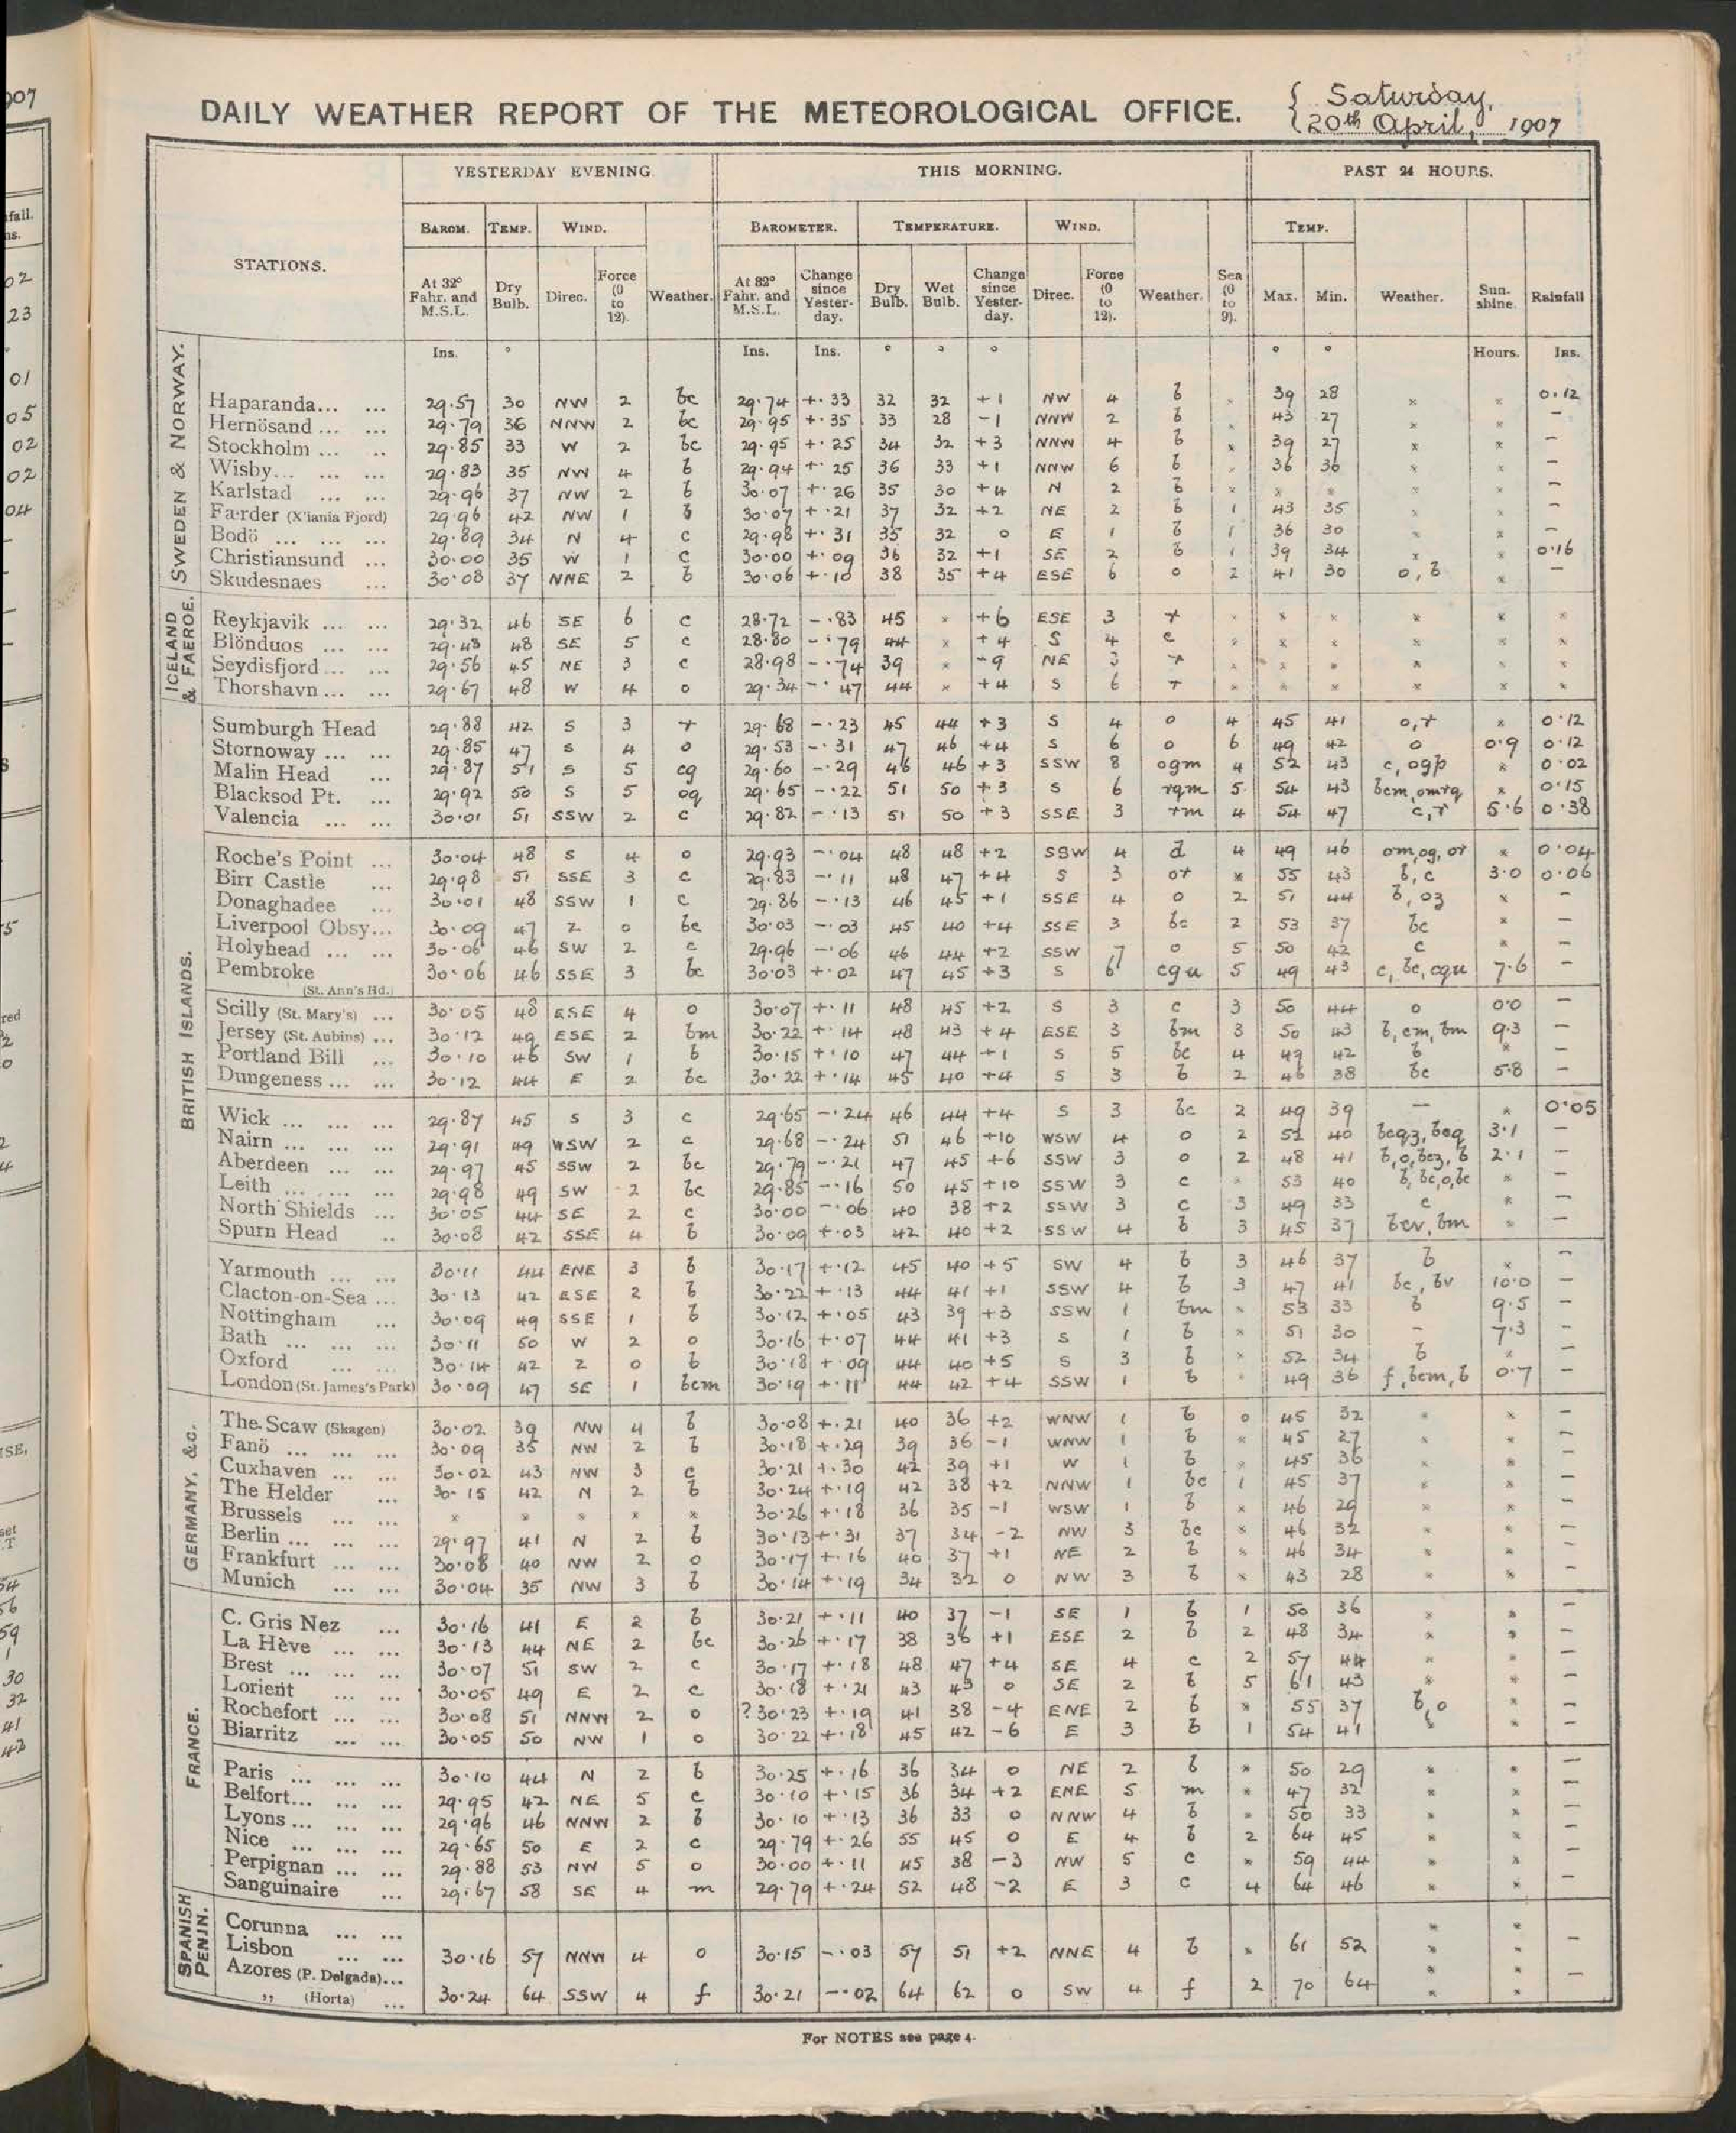 DAILY WEATHER REPORT OF THE METEOROLOGICAL OFFICE. { Saturday,
{ 20th April, 1907
YESTERDAY EVENING THIS MORNING. PAST 24 HOURS.
STATIONS.
BAROM. TEMP. WIND. BAROMETER. TEMPERATURE. WIND. TEMP.
At 32° Fahr. and M.S.L. Dry Bulb. Direc. Force (0 to 12). Weather. At 32° Fahr. and M.S.L. Change since Yesterday. Dry Bulb. Wet Bulb. Change since Yesterday. Direc. Force (0 to 12). Weather. Sea (0 to 9). Max. Min. Weather. Sunshine. Rainfall
Ins. ° Ins. Ins. ° ° ° ° ° Hours. Ins.
SWEDEN & NORWAY.
Haparanda... ... 29.57 30 NW 2 bc 29.74 +.33 32 32 +1 NW 4 b × 39 28 × × 0.12
Hernösand ... ... 29.79 36 NNW 2 bc 29.95 +.35 33 28 -1 NNW 2 b × 43 27 × × -
Stockholm ... .. 29.85 33 W 2 bc 29.95 +.25 34 32 +3 NNW 4 b × 39 27 × × -
Wisby... ... ... 29.83 35 NW 4 b 29.94 +.25 36 33 +1 NNW 6 b × 36 30 × × -
Karlstad ... ... 29.96 37 NW 2 b 30.07 +.26 35 30 +4 N 2 b × × × × × -
Færder (X'iania Fjord) 29.96 42 NW 1 b 30.07 +.21 37 32 +2 NE 2 b 1 43 35 × × -
Bodö ... ... ... 29.89 34 N 4 c 29.98 +.31 35 32 0 E 1 b 1 36 30 × × -
Christiansund ... 30.00 35 W 1 c 30.00 +.09 36 32 +1 SE 2 b 1 39 34 × × 0.16
Skudesnaes ... 30.08 37 NNE 2 b 30.06 +.10 38 35 +4 ESE 6 o 2 41 30 o, b × -
ICELAND & FAEROE.
Reykjavik ... ... 29.32 46 SE 6 c 28.72 -.83 45 × +6 ESE 3 r × × × × × ×
Blönduos ... ... 29.43 48 SE 5 c 28.80 -.79 44 × +4 S 4 c × × × × × ×
Seydisfjord ... ... 29.56 45 NE 3 c 28.98 -.74 39 × -9 NE 3 r × × × × × ×
Thorshavn ... ... 29.67 48 W 4 o 29.34 -.47 44 × +4 S 6 r × × × × × ×
BRITISH ISLANDS.
Sumburgh Head 29.88 42 S 3 r 29.68 -.23 45 44 +3 S 4 o 4 45 41 o,r × 0.12
Stornoway ... ... 29.85 47 S 4 o 29.53 -.31 47 46 +4 S 6 o 6 49 42 o 0.9 0.12
Malin Head ... 29.87 51 S 5 cg 29.60 -.29 46 46 +3 SSW 8 ogm 4 52 43 c, ogp × 0.02
Blacksod Pt. ... 29.92 50 S 5 og 29.65 -.22 51 50 +3 S 6 rqm 5 54 43 bcm, omrq × 0.15
Valencia ... ... 30.01 51 SSW 2 c 29.82 -.13 51 50 +3 SSE 3 rm 4 54 47 c,r 5.6 0.38
Roche's Point ... 30.04 48 S 4 o 29.93 -.04 48 48 +2 SSW 4 d 4 49 46 om,og,or × 0.04
Birr Castle ... 29.98 51 SSE 3 c 29.83 -.11 48 47 +4 S 3 or × 55 43 b, c 3.0 0.06
Donaghadee ... 30.01 48 SSW 1 c 29.86 -.13 46 45 +1 SSE 4 o 2 51 44 b, oz × -
Liverpool Obsy... 30.09 47 Z 0 bc 30.03 -.03 45 40 +4 SSE 3 bc 2 53 37 bc × -
Holyhead ... ... 30.06 46 SW 2 c 29.96 -.06 46 44 +2 SSW 7 o 5 50 42 c × -
Pembroke (St. Ann's Hd.) 30.06 46 SSE 3 bc 30.03 +.02 47 45 +3 S 6 cqu 5 49 43 c, bc, cqu 7.6 -
Scilly (St. Mary's) ... 30.05 48 ESE 4 o 30.07 +.11 48 45 +2 S 3 c 3 50 44 o 0.0 -
Jersey (St. Aubins) ... 30.12 49 ESE 2 bm 30.22 +.14 48 43 +4 ESE 3 bm 3 50 43 b, cm, bm 9.3 -
Portland Bill ... 30.10 46 SW 1 b 30.15 +.10 47 44 +1 S 5 bc 4 49 42 b × -
Dungeness ... ... 30.12 44 E 2 bc 30.22 +.14 45 40 +4 S 3 b 2 46 38 bc 5.8 -
Wick ... ... ... 29.87 45 S 3 c 29.65 -.24 46 44 +4 S 3 bc 2 49 39 - × 0.05
Nairn ... ... ... 29.91 49 WSW 2 c 29.68 -.24 51 46 +10 WSW 4 o 2 52 40 bcqz, bcq 3.1 -
Aberdeen ... ... 29.97 45 SSW 2 bc 29.79 -.21 47 45 +6 SSW 3 o 2 48 41 b,o,bcz, b 2.1 -
Leith ... ... ... 29.98 49 SW 2 bc 29.85 -.16 50 45 +10 SSW 3 c × 53 40 b, bc,o,bc × -
North Shields ... 30.05 44 SE 2 c 30.00 -.06 40 38 +2 SSW 3 c 3 49 33 c × -
Spurn Head .. 30.08 42 SSE 4 b 30.09 +.03 42 40 +2 SSW 4 b 3 45 37 bcv, bm × -
Yarmouth ... ... 30.11 44 ENE 3 b 30.17 +.12 45 40 +5 SW 4 b 3 46 37 b × -
Clacton-on-Sea ... 30.13 42 ESE 2 b 30.22 +.13 44 41 +1 SSW 4 b 3 47 41 bc, bv 10.0 -
Nottingham ... 30.09 49 SSE 1 b 30.12 +.05 43 39 +3 SSW 1 bm × 53 33 b 9.5 -
Bath ... ... ... 30.11 50 W 2 o 30.16 +.07 44 41 +3 S 1 b × 51 30 - 7.3 -
Oxford ... ... 30.14 42 Z 0 b 30.18 +.09 44 40 +5 S 3 b × 52 34 b × -
London (St. James's Park) 30.09 47 SE 1 bcm 30.19 +.11 44 42 +4 SSW 1 b × 49 36 f, bcm, b 0.7 -
GERMANY, &c.
The Scaw (Skagen) 30.02 39 NW 4 b 30.08 +.21 40 36 +2 WNW 1 b 0 45 32 × × -
Fanö ... ... ... 30.09 35 NW 2 b 30.18 +.29 39 36 -1 WNW 1 b × 45 27 × × -
Cuxhaven ... ... 30.02 43 NW 3 c 30.21 +.30 42 39 +1 W 1 b × 45 36 × × -
The Helder ... 30.15 42 N 2 b 30.24 +.19 42 38 +2 NNW 1 bc 1 45 37 × × -
Brussels ... ... × × × × × 30.26 +.18 36 35 -1 WSW 1 b × 46 29 × × -
Berlin ... ... ... 29.97 41 N 2 b 30.13 +.31 37 34 -2 NW 3 bc × 46 32 × × -
Frankfurt ... ... 30.08 40 NW 2 o 30.17 +.16 40 37 +1 NE 2 b × 46 34 × × -
Munich ... ... 30.04 35 NW 3 b 30.14 +.19 34 32 0 NW 3 b × 43 28 × × -
FRANCE.
C. Gris Nez ... 30.16 41 E 2 b 30.21 +.11 40 37 -1 SE 1 b 1 50 36 × × -
La Hève ... ... 30.13 44 NE 2 bc 30.26 +.17 38 36 +1 ESE 2 b 2 48 34 × × -
Brest ... ... ... 30.07 51 SW 2 c 30.17 +.18 48 47 +4 SE 4 c 2 57 44 × × -
Lorient ... ... 30.05 49 E 2 c 30.18 +.21 43 43 0 SE 2 b 5 61 43 × × -
Rochefort ... ... 30.08 51 NNW 2 o ? 30.23 +.19 41 38 -4 ENE 2 b × 55 37 b, o × -
Biarritz ... ... 30.05 50 NW 1 o 30.22 +.18 45 42 -6 E 3 b 1 54 41 × -
Paris ... ... ... 30.10 44 N 2 b 30.25 +.16 36 34 0 NE 2 b × 50 29 × × -
Belfort... ... ... 29.95 42 NE 5 c 30.10 +.15 36 34 +2 ENE 5 m × 47 32 × × -
Lyons ... ... ... 29.96 46 NNW 2 b 30.10 +.13 36 33 0 NNW 4 b × 50 33 × × -
Nice ... ... ... 29.65 50 E 2 c 29.79 +.26 55 45 0 E 4 b 2 64 45 × × -
Perpignan ... ... 29.88 53 NW 5 o 30.00 +.11 45 38 -3 NW 5 c × 59 44 × × -
Sanguinaire ... 29.67 58 SE 4 m 29.79 +.24 52 48 -2 E 3 c 4 64 46 × × -
SPANISH PENIN.
Corunna ... ... × ×
Lisbon ... ... 30.16 57 NNW 4 o 30.15 -.03 57 51 +2 NNE 4 b × 61 52 × × -
Azores (P. Delgada)... × ×
,, (Horta) ... 30.24 64 SSW 4 f 30.21 -.02 64 62 0 SW 4 f 2 70 64 × × -
For NOTES see page 4.